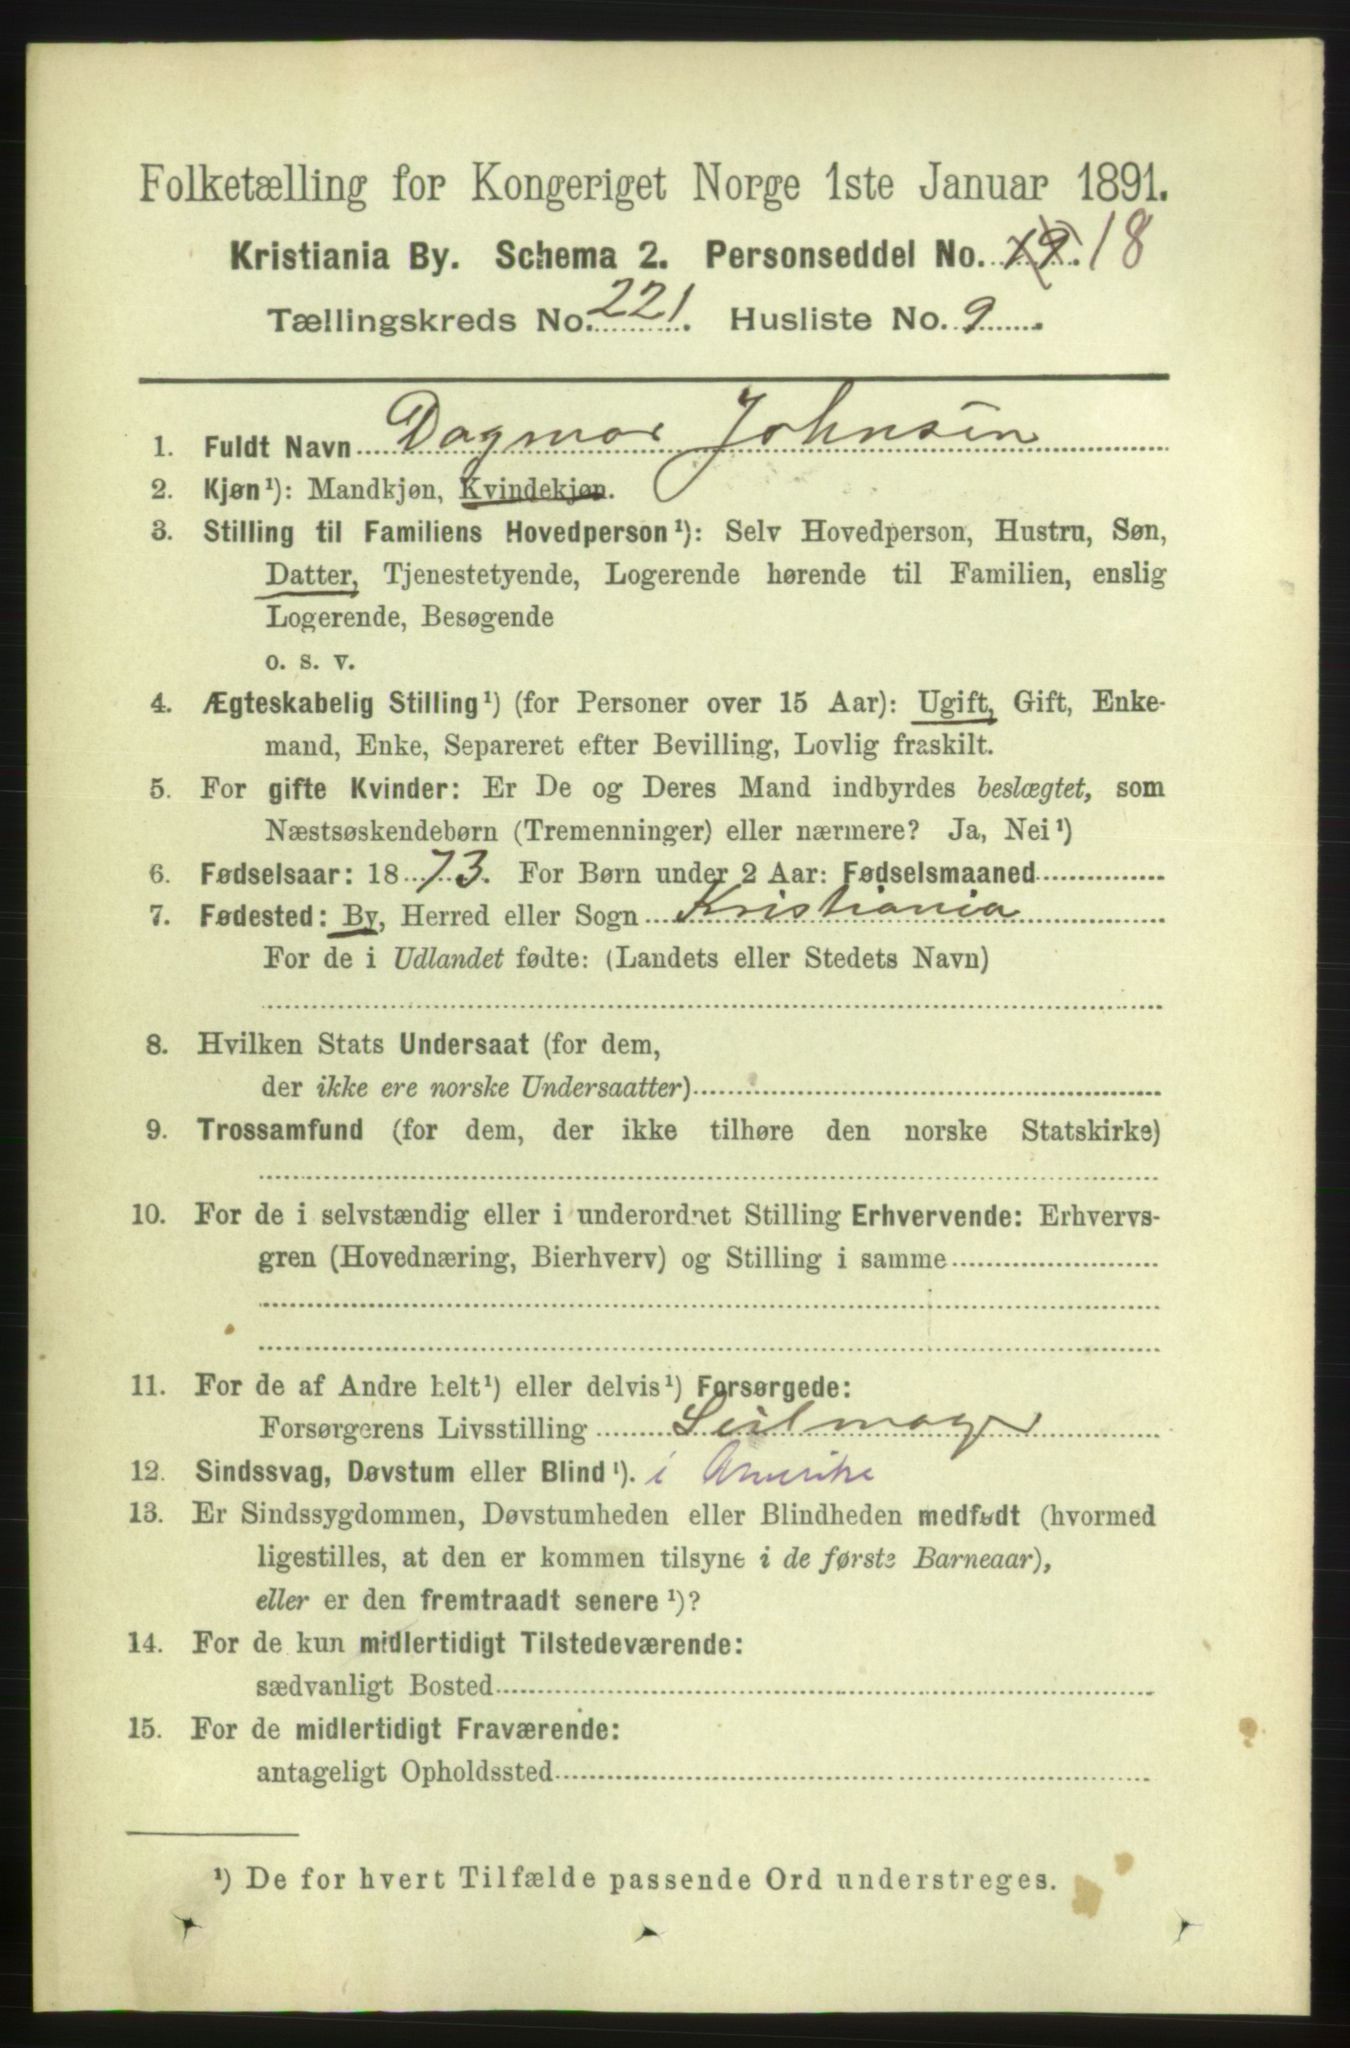 Folketælling for Kongeriget Norge 1ste Januar 1891.
Kristiania By. Schema 2. Personseddel No. 19. 18
Tællingskreds No. 221. Husliste No. 9.
1. Fuldt Navn Dagmar Johnsen
2. Kjøn¹): Mandkjøn, Kvindekjøn.
3. Stilling til Familiens Hovedperson¹): Selv Hovedperson, Hustru, Søn,
Datter, Tjenestetyende, Logerende hørende til Familien, enslig
Logerende, Besøgende
o. s. v.
4. Ægteskabelig Stilling¹) (for Personer over 15 Aar): Ugift, Gift, Enke-
mand, Enke, Separeret efter Bevilling, Lovlig fraskilt.
5. For gifte Kvinder: Er De og Deres Mand indbyrdes beslægtet, som
Næstsøskendebørn (Tremenninger) eller nærmere? Ja, Nei¹)
6. Fødselsaar: 1873. For Børn under 2 Aar: Fødselsmaaned
7. Fødested: By, Herred eller Sogn Kristiania
For de i Udlandet fødte: (Landets eller Stedets Navn)
8. Hvilken Stats Undersaat (for dem,
der ikke ere norske Undersaatter)
9. Trossamfund (for dem, der ikke tilhøre den norske Statskirke)
10. For de i selvstændig eller i underordnet Stilling Erhvervende: Erhvervs-
gren (Hovednæring, Bierhverv) og Stilling i samme
11. For de af Andre helt¹) eller delvis¹) Forsørgede:
Forsørgerens Livsstilling Seilmager
12. Sindssvag, Døvstum eller Blind¹). i Amerika
13. Er Sindssygdommen, Døvstumheden eller Blindheden medfødt (hvormed
ligestilles, at den er kommen tilsyne i de første Barneaar),
eller er den fremtraadt senere¹)?
14. For de kun midlertidigt Tilstedeværende:
sædvanligt Bosted
15. For de midlertidigt Fraværende:
antageligt Opholdssted
¹) De for hvert Tilfælde passende Ord understreges.